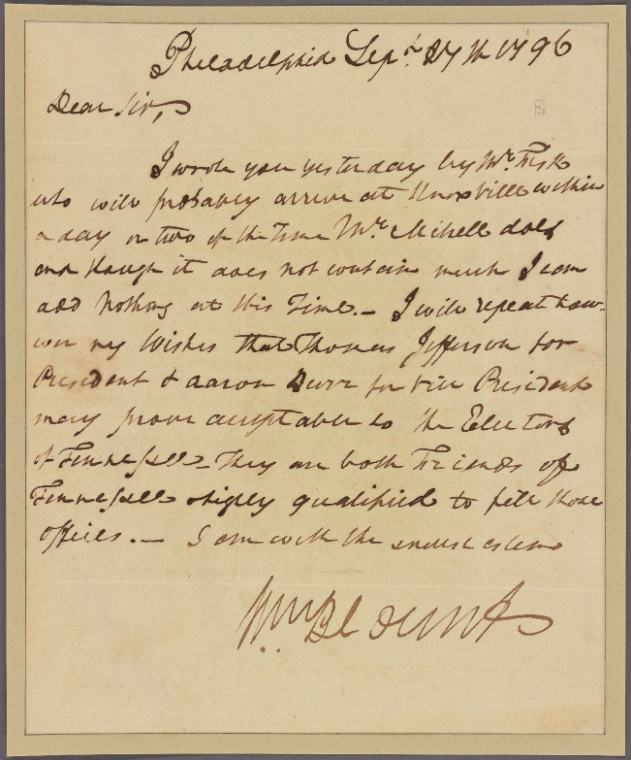 Philadelphia Sepr. 27th 1796
Dear Sir,
I wrote you yesterday by Mr. Fisk
who will probably arrive at Knoxville within
a day or two of the time Mr. Mitchell does
and though it does not contain much I can
add Nothing at this Time.— I will repeat how-
ever my Wishes that Thomas Jefferson for
President & Aaron Burr for Vice President
may prove acceptable to the Electors
of Tennessee — They are both Friends of
Tennessee & highly qualified to fill those
offices.— I am with the esteem
Wm Blount